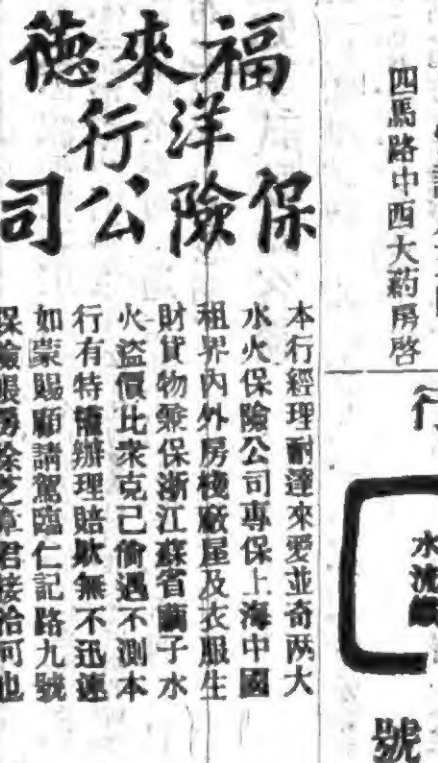 福來德
洋行
保險公司
本行經理耐達來愛並奇两大
水火保險公司專保上海中國
租界內外房棧廠屋及衣服生
財貨物兼保浙江蘇省繭子水
火盜價比衆克己倘遇不測本
行有特權辦理賠欵無不迅速
如蒙賜顧請駕臨仁記路九號
保險賬房徐芝葦君接洽可也
四馬路中西大葯房啓
行
水
號